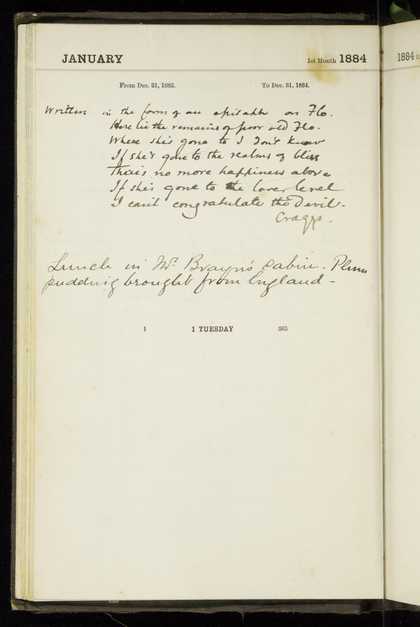 JANUARY 1st Month 1884 1884
From Dec. 31, 1883. To Dec. 31, 1884.
Written in the form of an epitaph on Flo.
Here lie the remains of poor old Flo.
Where she's gone to I don't know
If she's gone to the realms of bliss
There's no more happiness above
If she's gone to the lower level
I can't congratulate the Devil.
Craggs.
Lunch in Mr. Brayn's cabin. Plum
pudding brought from England -
1 1 TUESDAY 365